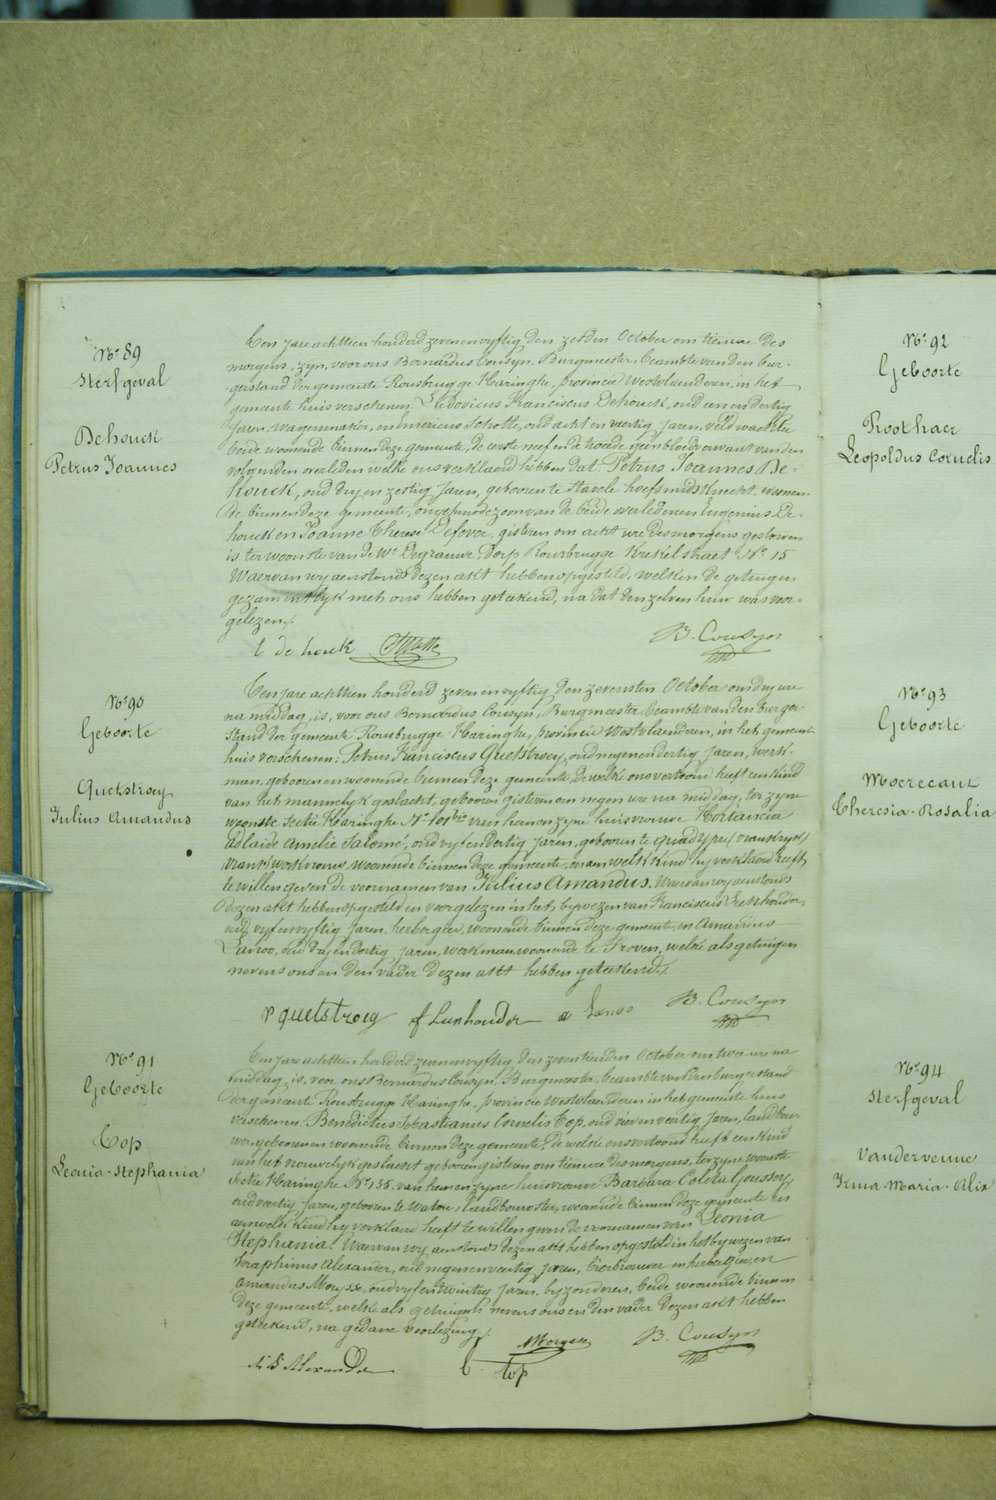 N° 89
Sterfgeval
Dehouck
Petrus Joannes
Een jare achttien honderd zevenenvyftig den zesden October om tien ure des
morgens, zyn, voor ons Bernardus Cousyn, Burgmeester, beambte van den bur-
gerstand der gemeente Rousbrugge Haringhe, provincie Westvlaenderen, in het
gemeente huis verschenen Ludovicus Franciscus Dehouck, oud een en dertig
jaren, wagenmaker, en Americus Schotte, oud acht en veertig jaren, veldwachter
beide woonende binnen deze gemeente, de eerste neef en de tweede geen bloedverwant van den
volgenden overleden welke ons verklaerd hebben dat Petrus Joannes De-
houck, oud dry en zestig jaren, geboren te Stavele hoefsmids knecht, woonen-
de binnen deze gemeente, ongehuwde zoon van de beide overledenen Eugenius De-
houck en Joanne Therese Defever, gisteren om acht ure des morgens gestorven
is ter woonste van de We Degrauwe, Dorp Rousbrugge Krekelstraet N° 15
Waervan wy aenstonds dezen akt hebben opgesteld, welken de getuigen
gezamentlyk met ons hebben geteekend, na dat den zelven hun was voor-
gelezen.
l dehouck Schotte B. Cousyn
N° 90
Geboorte
Quetstroey
Julius Amandus
Een jare achttien honderd zeven en vyftig den zevensten October om dry ure
na middag, is, voor ons Bernardus Cousyn, Burgmeester beambte van den burger
stand der gemeente Rousbrugge Haringhe, provincie Westvlaenderen, in het gemeente
huis verschenen, Petrus Franciscus Quetstroey, oud negenendertig jaren, werk-
man, geboren en woonende binnen deze gemeente, De welke ons vertoond heeft een kind
van het mannelyk geslacht, geboren gisteren om negen ure na middag, ter zyne
woonste Sectie Haringhe N° 101bis van hem en zyne huisvrouwe Hortancia
Adlaide Amelie Salomé, oud vyf en dertig jaren, geboren te Quadypre (Frankryk)
werkvrouw, woonende binnen deze gemeente, en aen welk kind hy verklaerd heeft
te willen geven de voornamen van Julius Amandus. Waervan wy aenstonds
dezen akt hebben opgesteld en voorgelezen in het bywezen van Franciscus
oud vyf en vyftig jaren, herbergier, woonende binnen deze gemeente, en Amandus
Lanoo, oud dry en dertig jaren, werkman, woonende te Proven, welke als getuigen
nevens ons en den vader dezen akt hebben geteekend.
P quetstroey A Lanoo B. Cousyn
N° 91
Geboorte
Top
Leonia-Stephania
Een jare achttien honderd zevenenvyftig, den zeventienden October om twee ure na
middag, is, voor ons Bernardus Cousyn, Burgmeester, beambte van den burgerstand
der gemeente Rousbrugge Haringhe, provincie Westvlaenderen in het gemeente huis
verschenen Benedictus Sebastianus Cornelis Top, oud vier en veertig jaren, landbou-
wer, geboren en woonende binnen deze gemeente, de welke ons vertoond heeft een kind
van het vrouwelyk geslacht geboren gisteren om tien ure des morgens, ter zyne woonste
Sectie Haringhe N° 135 van hem en zyne huisvrouwe Barbara Coleta
oud veertig jaren, geboren te Watou, landbouwster, woonende binnen deze gemeente en
aen welk kind hy verklaerd heeft te willen geven de voornamen van Leonia
Stephania. Waervan wy aenstonds dezen akt hebben opgesteld in het bywezen van
Seraphinus Alexander, oud negen en veertig jaren, bierbrouwer en herbergier, en
Amandus oud vyf en twintig jaren, byzonderen, beide woonende binnen
deze gemeente, welke als getuigen nevens ons en den vader dezen akt hebben
geteekend, na gedane voorlezing.
Alexander B. Top B. Cousyn
N° 92
Geboorte
Roothaer
Leopoldus Cornelis
N° 93
Geboorte
Moerecaut
Theresia-Rosalia
N° 94
Sterfgeval
Vandervenne
Irma-Maria-Alix